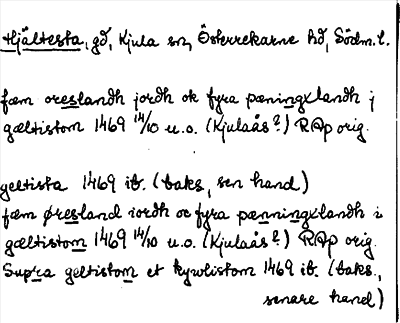 Hjältesta, gd, Kjula sn, Österrekarne hd, Södm.l.
fæm oreslandh jordh ok fyra pæningxlandh j
gæltistom 1469 14/10 u.o. (Kjulaås?) RAp orig.
geltista 1469 ib. (baks, sen hand)
fæm øresland iordh oc fyra pænningxlandh i
gæltistom 1469 14/10 u.o. (Kjulaås?) RAp orig.
Supra geltistom et kywlistom 1469 ib. (baks.,
senare hand)